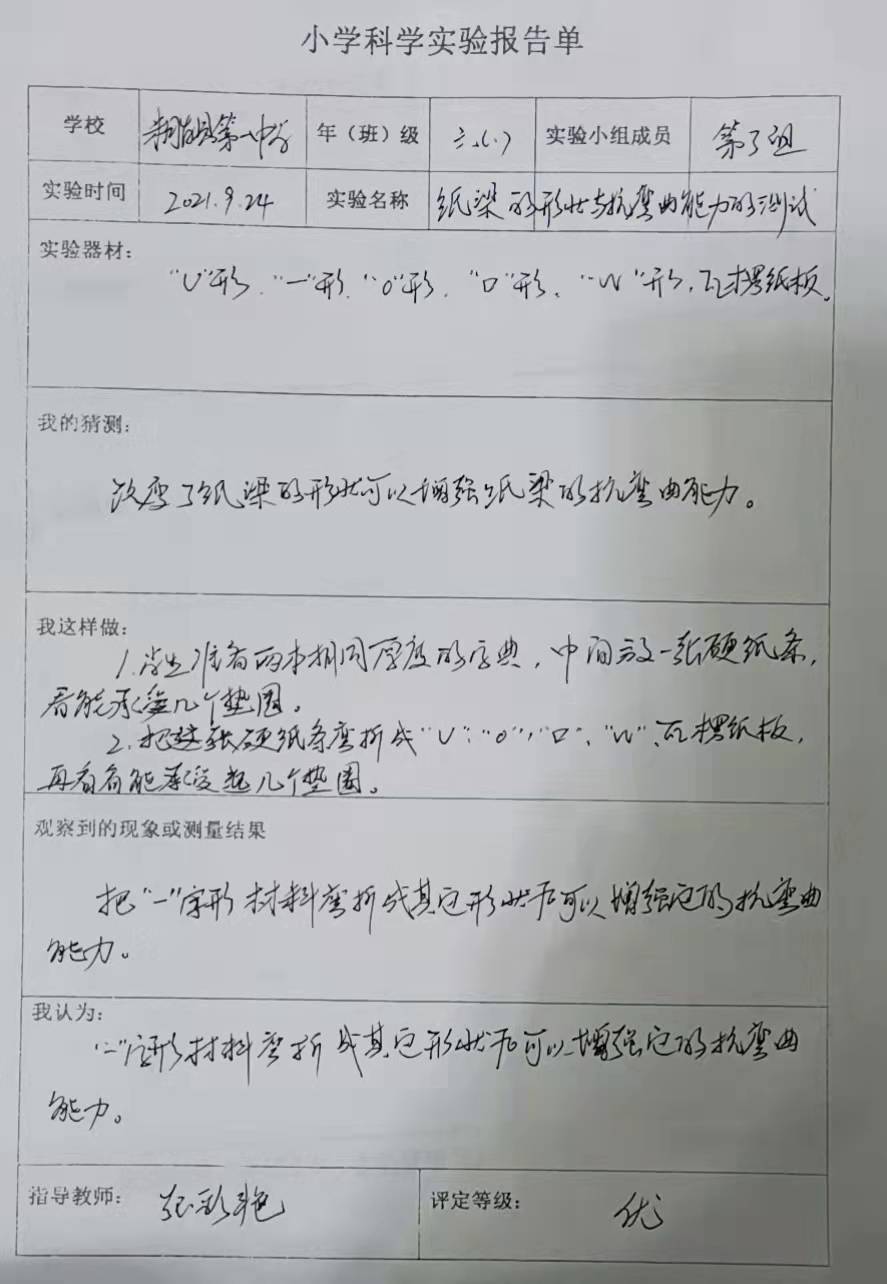 小学科学实验报告单
学校 第一中学 年（班）级 六.(一) 实验小组成员 第3组
实验时间 2021.9.24 实验名称 纸梁的形状与抗弯曲能力的测试
实验器材：
"U"形、"一"形、"o"形、"口"形、"W"形，瓦楞纸板。
我的猜测：
改变了纸梁的形状可以增强纸梁的抗弯曲能力。
我这样做：
1.学生准备两本相同厚度的字典，中间放一张硬纸条，
看能承受几个垫圈。
2.把这张硬纸条弯折成"U"、"o"、"口"、"W"、瓦楞纸板，
再看看能承受起几个垫圈。
观察到的现象或测量结果
把"一"字形材料弯折成其它形状后可以增强它的抗弯曲
能力。
我认为：
"一"字形材料弯折成其它形状后可以增强它的抗弯曲
能力。
指导教师： 彩艳 评定等级： 优